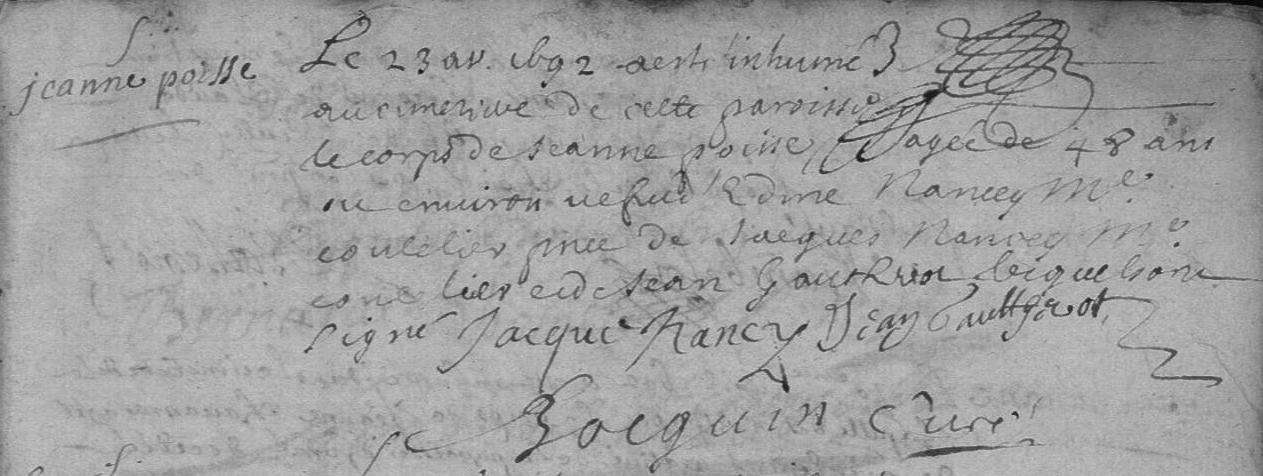 jeanne poisse
Le 23 avr. 1692 a esté inhumé
au cimetiere de cette paroisse
le corps de Jeanne poisse, agée de 48 ans
ou environ Edme Nancey Me.
coutelier pnce de Jacques Nancey Me.
coutelier et de Jean Gauthrot lesquels ont
signé Jacque Nancy Jean Gaulthrot
Jocquin Curé